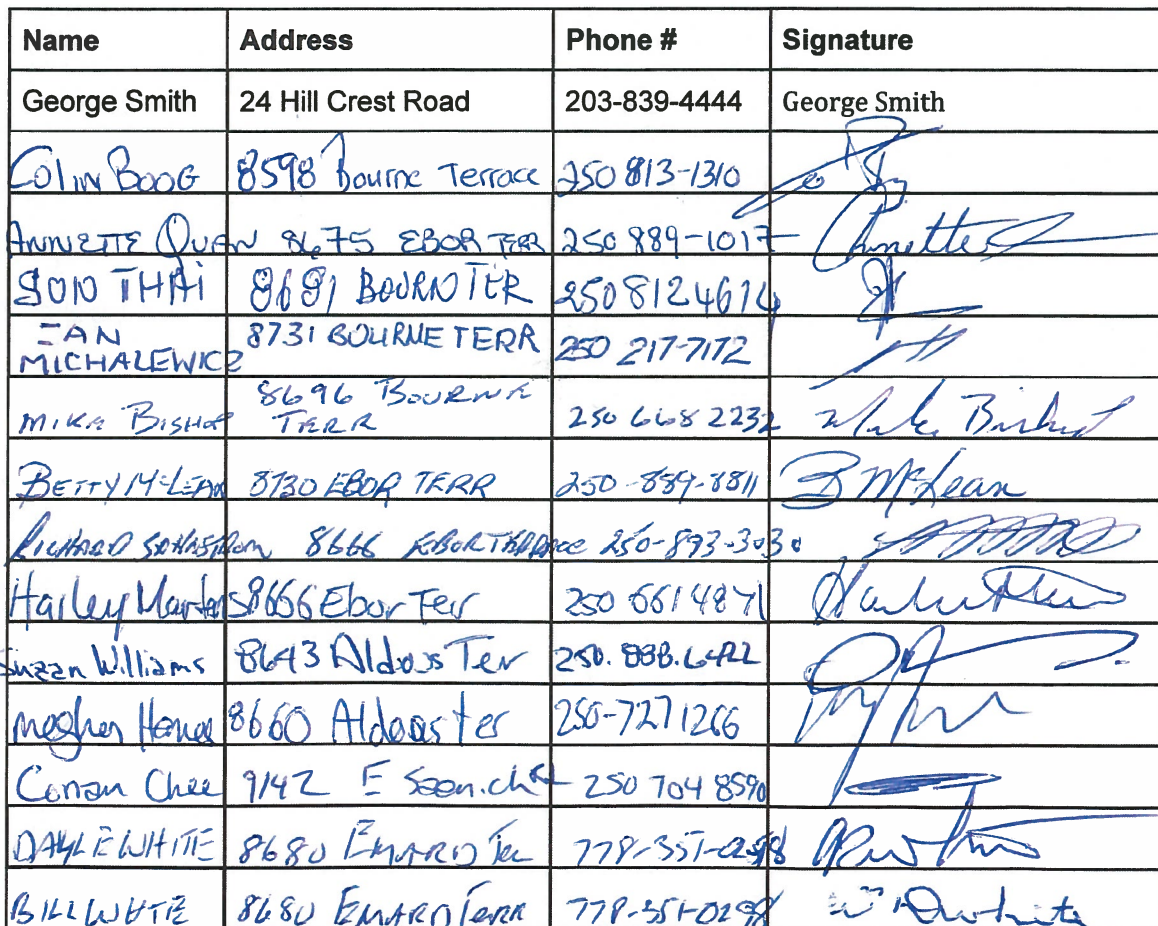 Name Address Phone # Signature
George Smith 24 Hill Crest Road 203-839-4444 George Smith
COLIN BOOG 8598 Bourne Terrace 250 813-1310
ANNETTE QUAN 8675 EBOR TERR 250 889-1017 Annette
SON THAI 8681 BOURN TER 250 812 4614
IAN 8731 BOURNE TERR 250 217-7172
MICHALEWICZ
MIKE BISHOP 8696 BOURNE 250 668 2232 Mike Bishop
TERR
BETTY MCLEAN 8730 EBOR TERR 250-889-8811 B McLean
RICHARD 8666 EBOR TERRACE 250-893-3030
Hailey Martens 8666 Ebor Terr 250 661 4871
Suzan Williams 8643 Aldous Ter 250.888.6422
Meghan 8660 Aldous ter 250-727 1266
Conan Chee 9142 E Saanich Rd 250 704 8590
DAYLE WHITE 8680 EMARD Ter 778-351-0298
BILL WHITE 8680 EMARD TERR 778-351-0298